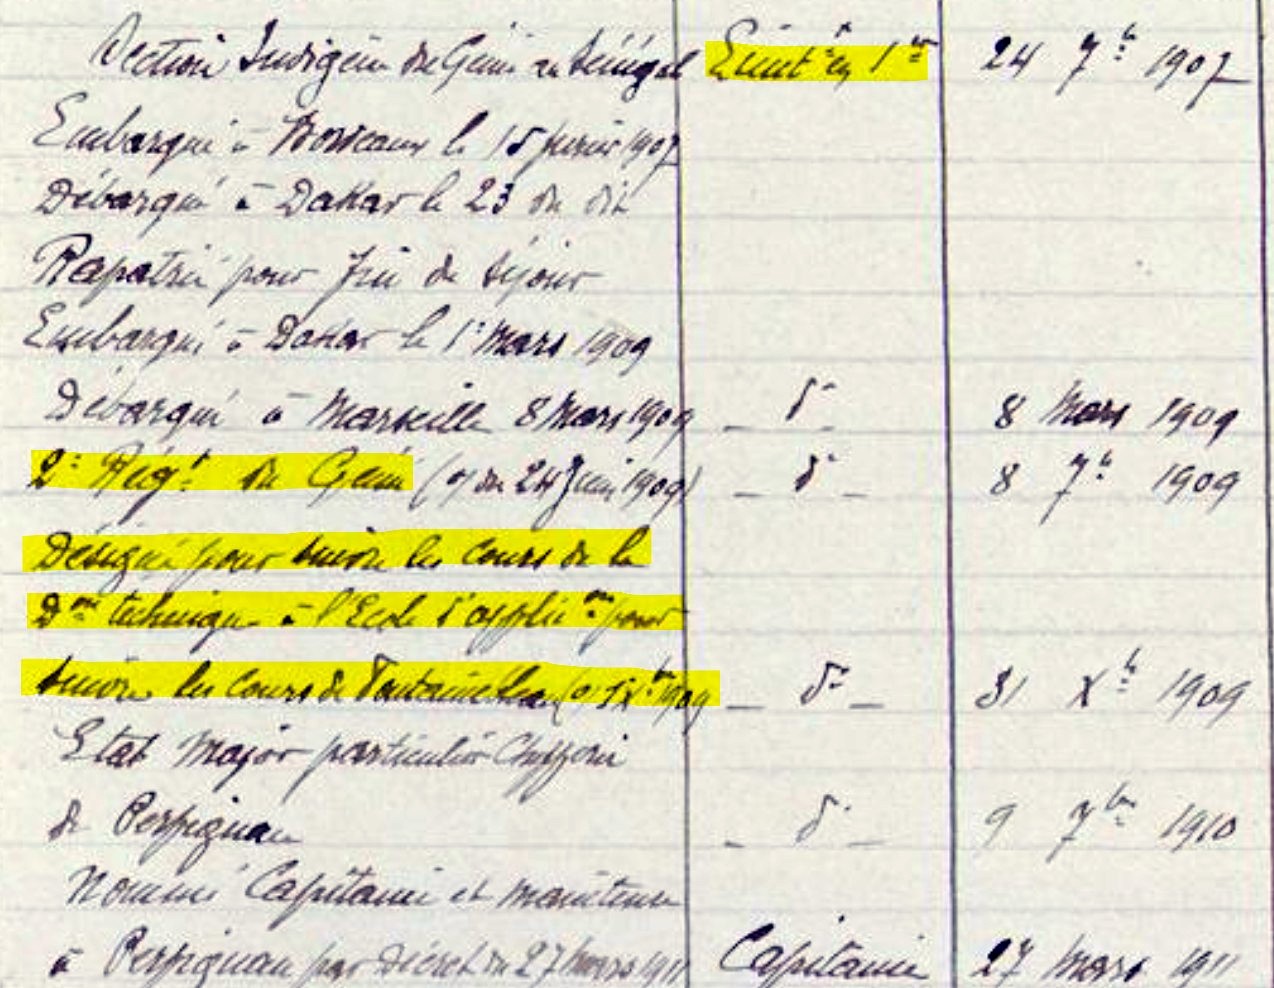 Section Indigène du Génie au Sénégal Lieut^t en 1^er 24 7^b 1907
Embarqué à Bordeaux le 15 février 1907
Débarqué à Dakar le 23 du dit
Rapatrié pour fin de séjour
Embarqué à Dakar le 1^r Mars 1909
Débarqué à Marseille 8 Mars 1909 _ d° 8 Mars 1909
2^e Rég^t du Génie (o/ du 24 Juin 1909) _ d° _ 8 7^b 1909
Désigné pour suivre les cours de la
D^on technique à l'Ecole d'applic^on pour
suivre les cours de Fontainebleau (o/ 1 X^bre 1909 _ d° _ 31 X^b 1909
Etat Major particulier Chefferie
de Perpignan _ d° _ 9 7^bre 1910
Nommé Capitaine et maintenu
à Perpignan par Décret du 27 Mars 1911 Capitaine 27 Mars 1911